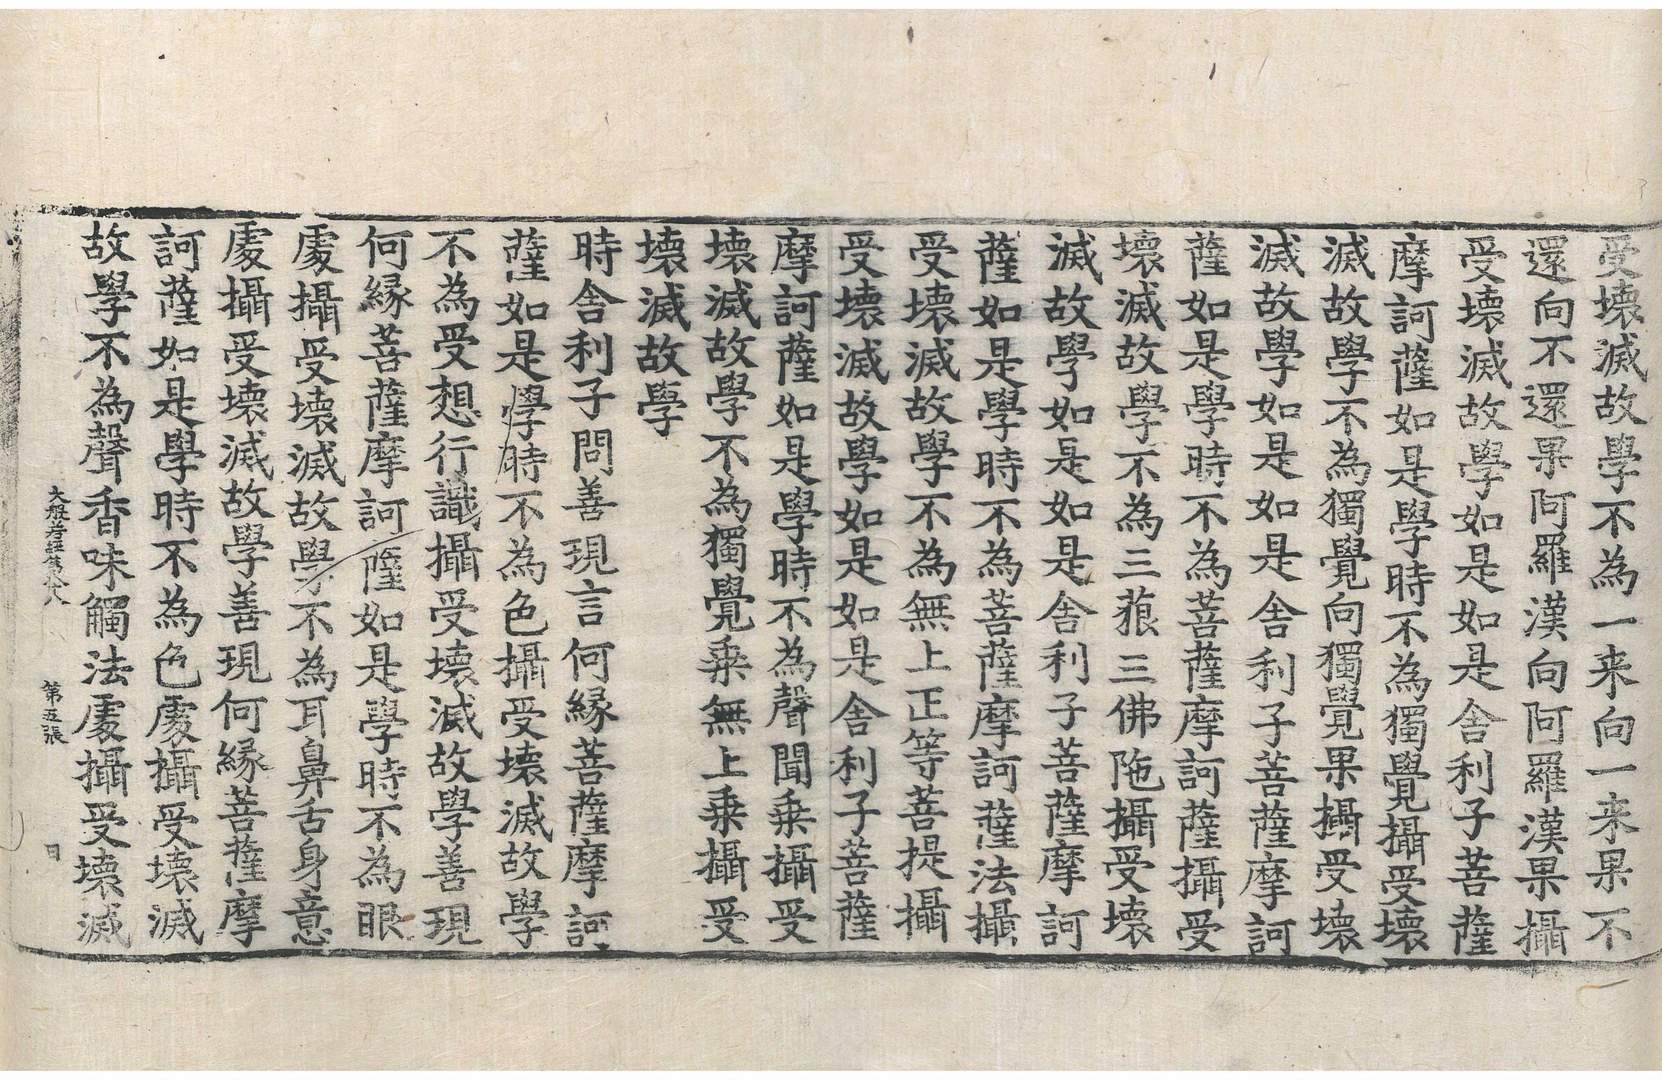 受壞滅故學不為一来向一来果不
還向不還果阿羅漢向阿羅漢果攝
受壞滅故學如是如是舍利子菩薩
摩訶薩如是學時不為獨覺攝受壞
滅故學不為獨覺向獨覺果攝受壞
滅故學如是如是舍利子菩薩摩訶
薩如是學時不為菩薩摩訶薩攝受
壞滅故學不為三藐三佛陁攝受壞
滅故學如是如是舍利子菩薩摩訶
薩如是學時不為菩薩摩訶薩法攝
受壞滅故學不為無上正等菩提攝
受壞滅故學如是如是舍利子菩薩
摩訶薩如是學時不為聲聞乗攝受
壞滅故學不為獨覺乗無上乗攝受
壞滅故學
時舍利子問善現言何緣菩薩摩訶
薩如是學時不為色攝受壞滅故學
不為受想行識攝受壞滅故學善現
何緣菩薩摩訶薩如是學時不為眼
處攝受壞滅故學不為耳鼻舌身意
處攝受壞滅故學善現何緣菩薩摩
訶薩如是學時不為色處攝受壞滅
故學不為聲香味觸法處攝受壞滅
大般若經第八 第五張 日